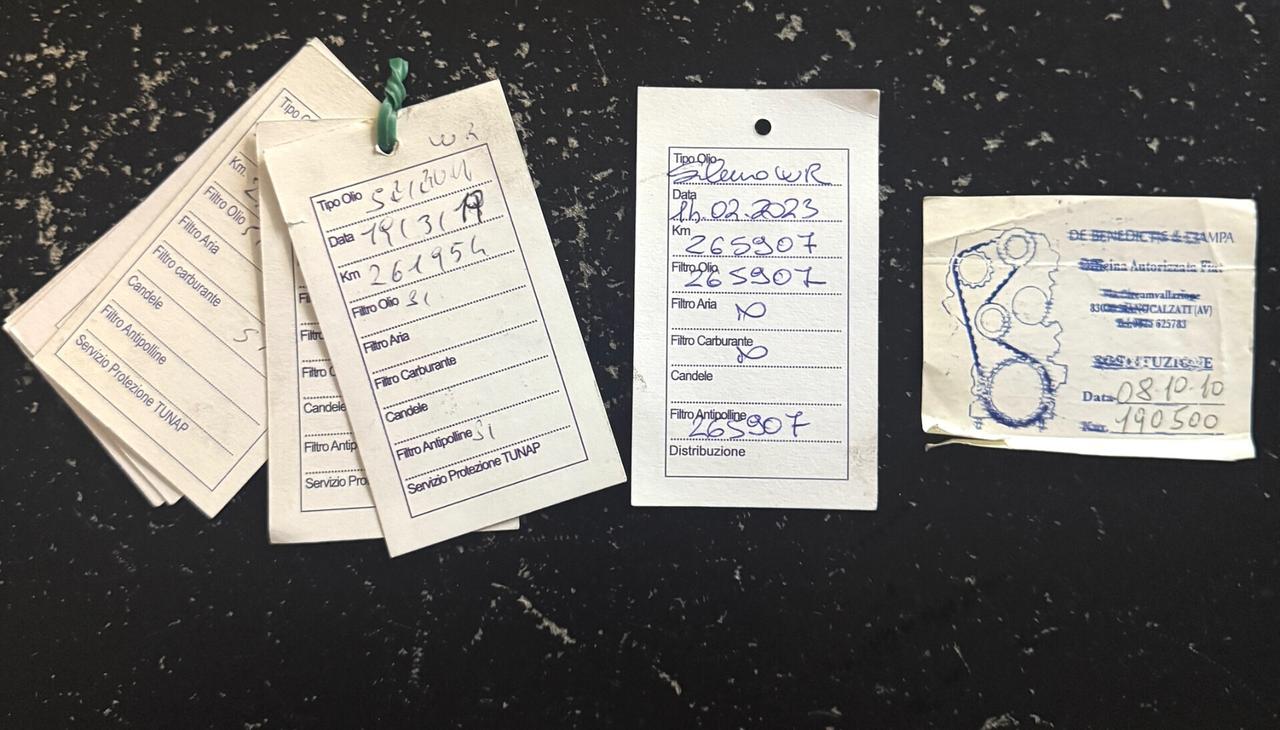 Tipo O
Km. 2
Filtro Olio S
Filtro Aria
Filtro carburante
Candele S
Filtro Antipolline
Servizio Protezione TUNAP
Candele
Filtro Antip
Servizio Pro
WR
Tipo Olio
Data 19/3/19
Km 261954
Filtro Olio SI
Filtro Aria
Filtro Carburante
Candele
Filtro Antipolline SI
Servizio Protezione TUNAP
Tipo Olio WR
Data 02.2023
Km 265907
Filtro Olio 265907
Filtro Aria
Filtro Carburante
Candele
Filtro Antipolline 265907
Distribuzione
DE BENEDICTIS &
Autorizzata Fiat
(AV)
625783
Data 08-10-10
Km. 190500